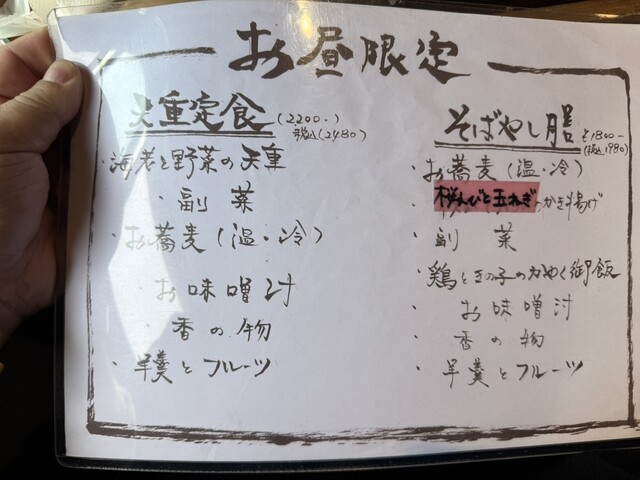 お昼限定
天重定食
(2200-)
税込(2480)
・海老と野菜の天重
・副菜
・お蕎麦(温・冷)
お味噌汁
・香の物
・羊羹とフルーツ
そばやし膳
¥1800-
(税込1980)
・お蕎麦(温・冷)
・桜えびと玉ねぎのかき揚げ
・副菜
・鶏ときの子のかやく御飯
・お味噌汁
・香の物
・羊羹とフルーツ